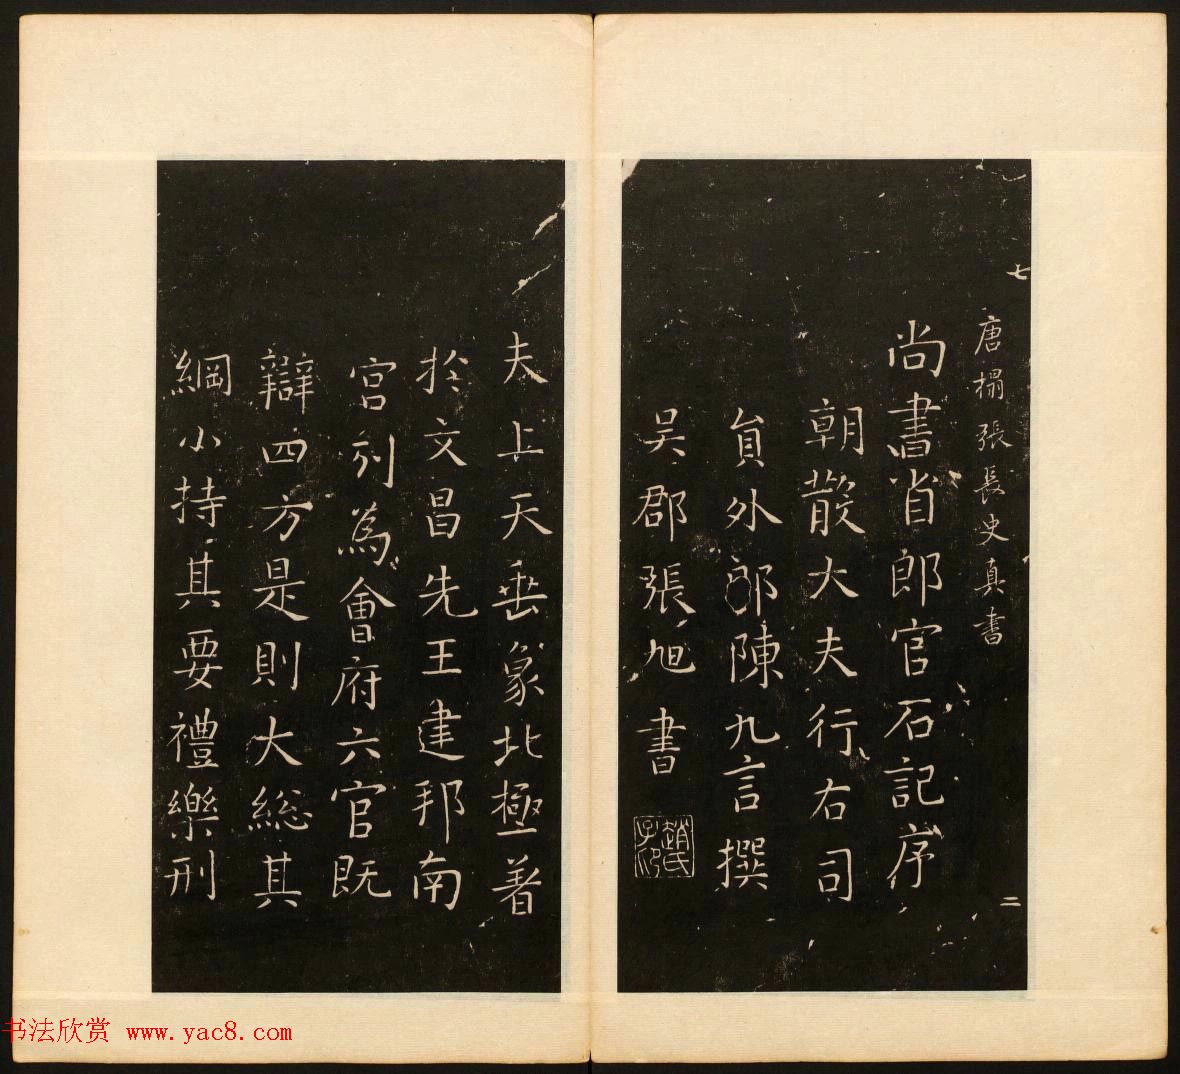 七
唐榻張長史真書
二
尚書省郎官石記序
朝散大夫行右司
員外郎陳九言撰
吳郡張旭書
趙氏子印
夫上天垂象北極著
於文昌先王建邦南
宮列為會府六官既
辯四方是則大總其
綱小持其要禮樂刑
书法欣赏 www.yac8.com